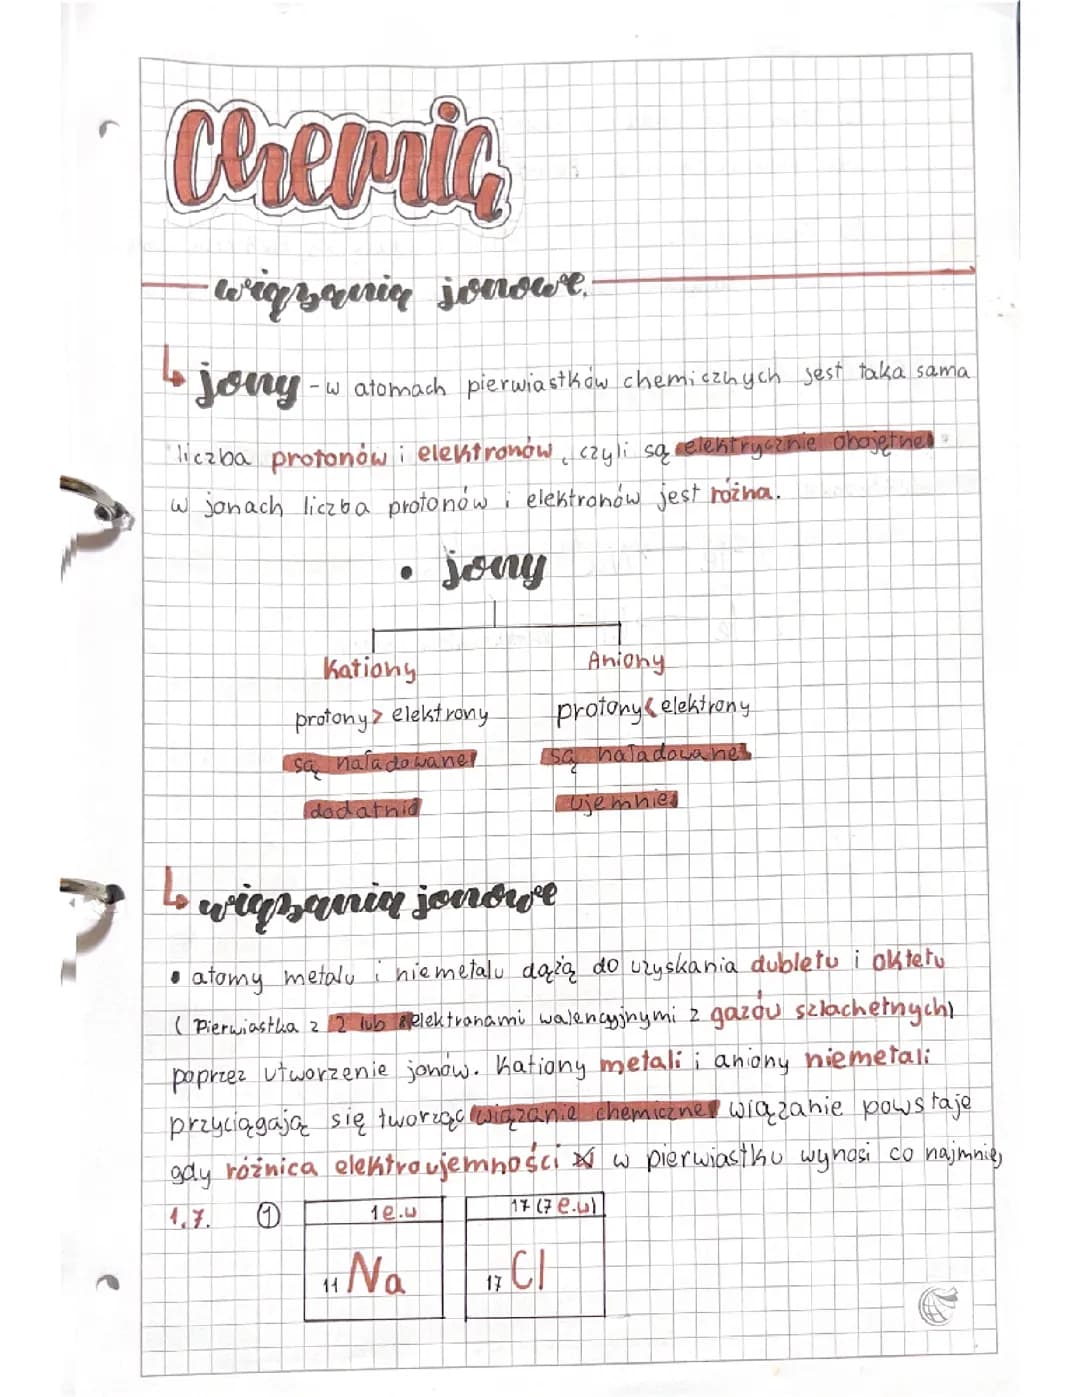 Chemia
wiązania jonowe.
↳ jony - w atomach pierwiastków chemicznych jest taka sama
liczba protonów i elektronów, czyli są elektrycznie obojętne.
w jonach liczba protonów i elektronów jest różna.
• jony
Kationy Aniony
protony > elektrony protony < elektrony
są naładowane są naładowane
dodatnio ujemnie
↳ wiązania jonowe
• atomy metalu i niemetalu dążą do uzyskania dubletu i oktetu
(Pierwiastka z 2 lub 8 elektronami walencyjnymi z gazów szlachetnych)
poprzez utworzenie jonów. Kationy metali i aniony niemetali
przyciągają się tworząc wiązanie chemiczne wiązanie powstaje
gdy różnica elektroujemności w pierwiastku wynosi co najmniej
1.7. ① 1 e.w 17 (7 e.w)
11 Na 17 Cl